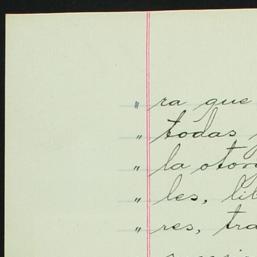 " ra que
" todas
" la otor
" les, lib
" res, tra